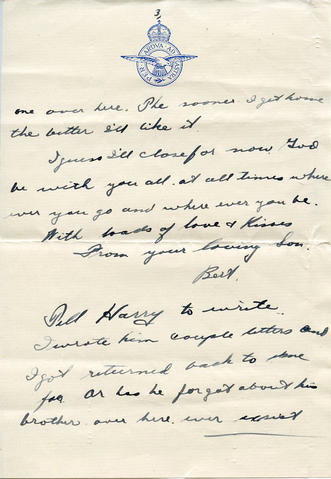 3
PER ARDUA AD ASTRA
one over here. The sooner I get home
the better I'd like it.
I guess I'll close for now. God
be with you all at all times where
ever you go and where ever you be.
With loads of love & Kisses
From your loving Son.
Bert.
Tell Harry to write.
I wrote him couple letters and
I got returned back to
Or has he forgot about his
brother over here ever